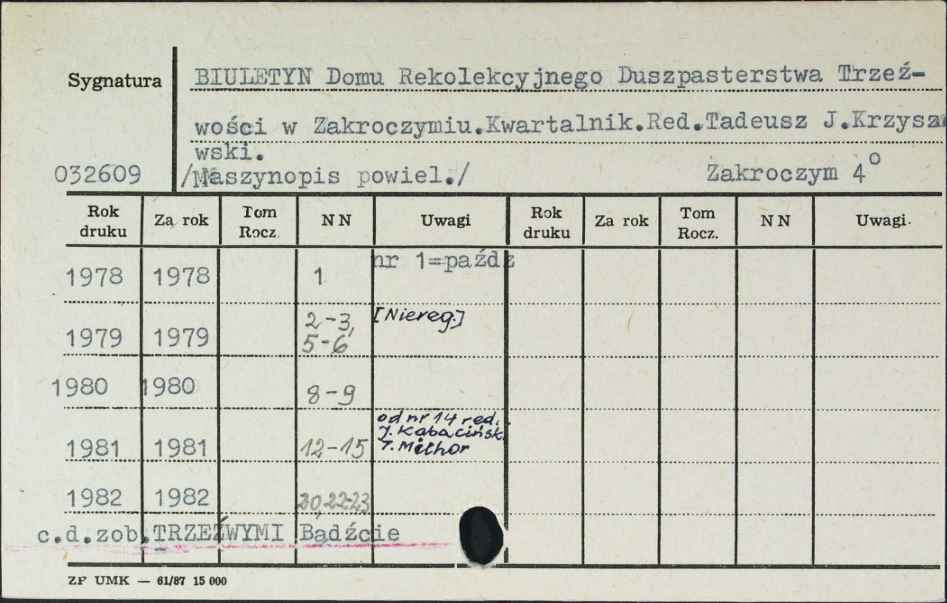 Sygnatura
BIULETYN Domu Rekolekcyjnego Duszpasterstwa Trzeź-
wości w Zakroczymiu.Kwartalnik.Red.Tadeusz J.Krzysza
wski.
032609 /Maszynopis powiel./ Zakroczym 4°
Rok druku Za rok Tom Rocz. NN Uwagi Rok druku Za rok Tom Rocz. NN Uwagi
1978 1978 1 nr 1=paźdz
1979 1979 2-3, 5-6 [Niereg.]
1980 1980 8-9
1981 1981 12-15 od nr 14 red. J. Kabacińsk. T. Michor
1982 1982 20,22-23
c.d.zob.TRZEŹWYMI Bądźcie
ZP UMK — 61/87 15 000